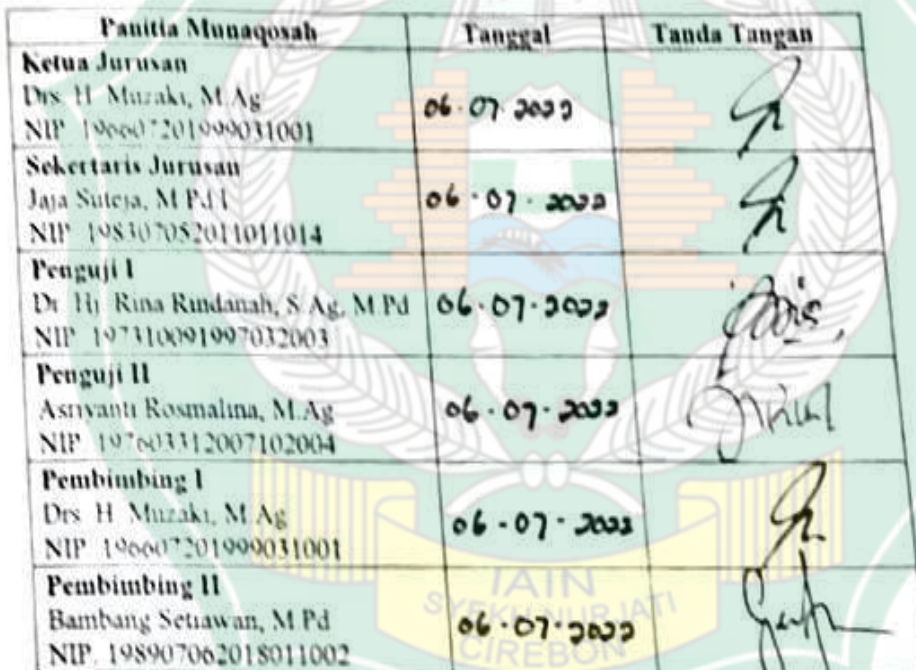 Panitia Munaqosah Tanggal Tanda Tangan
Ketua Jurusan
Drs. H. Muzaki, M.Ag
NIP. 196607201999031001
06-07-2022
Sekertaris Jurusan
Jaja Suteja, M.Pd.I
NIP. 198307052011011014
06-07-2022
Penguji I
Dr. Hj. Rina Rindanah, S.Ag, M.Pd
NIP. 197310091997032003
06-07-2022
Penguji II
Asriyanti Rosmalina, M.Ag
NIP. 197603312007102004
06-07-2022
Pembimbing I
Drs. H. Muzaki, M.Ag
NIP. 196607201999031001
06-07-2022
Pembimbing II
Bambang Setiawan, M.Pd
NIP. 198907062018011002
06-07-2022
IAIN
SYEKH NUR JATI
CIREBON